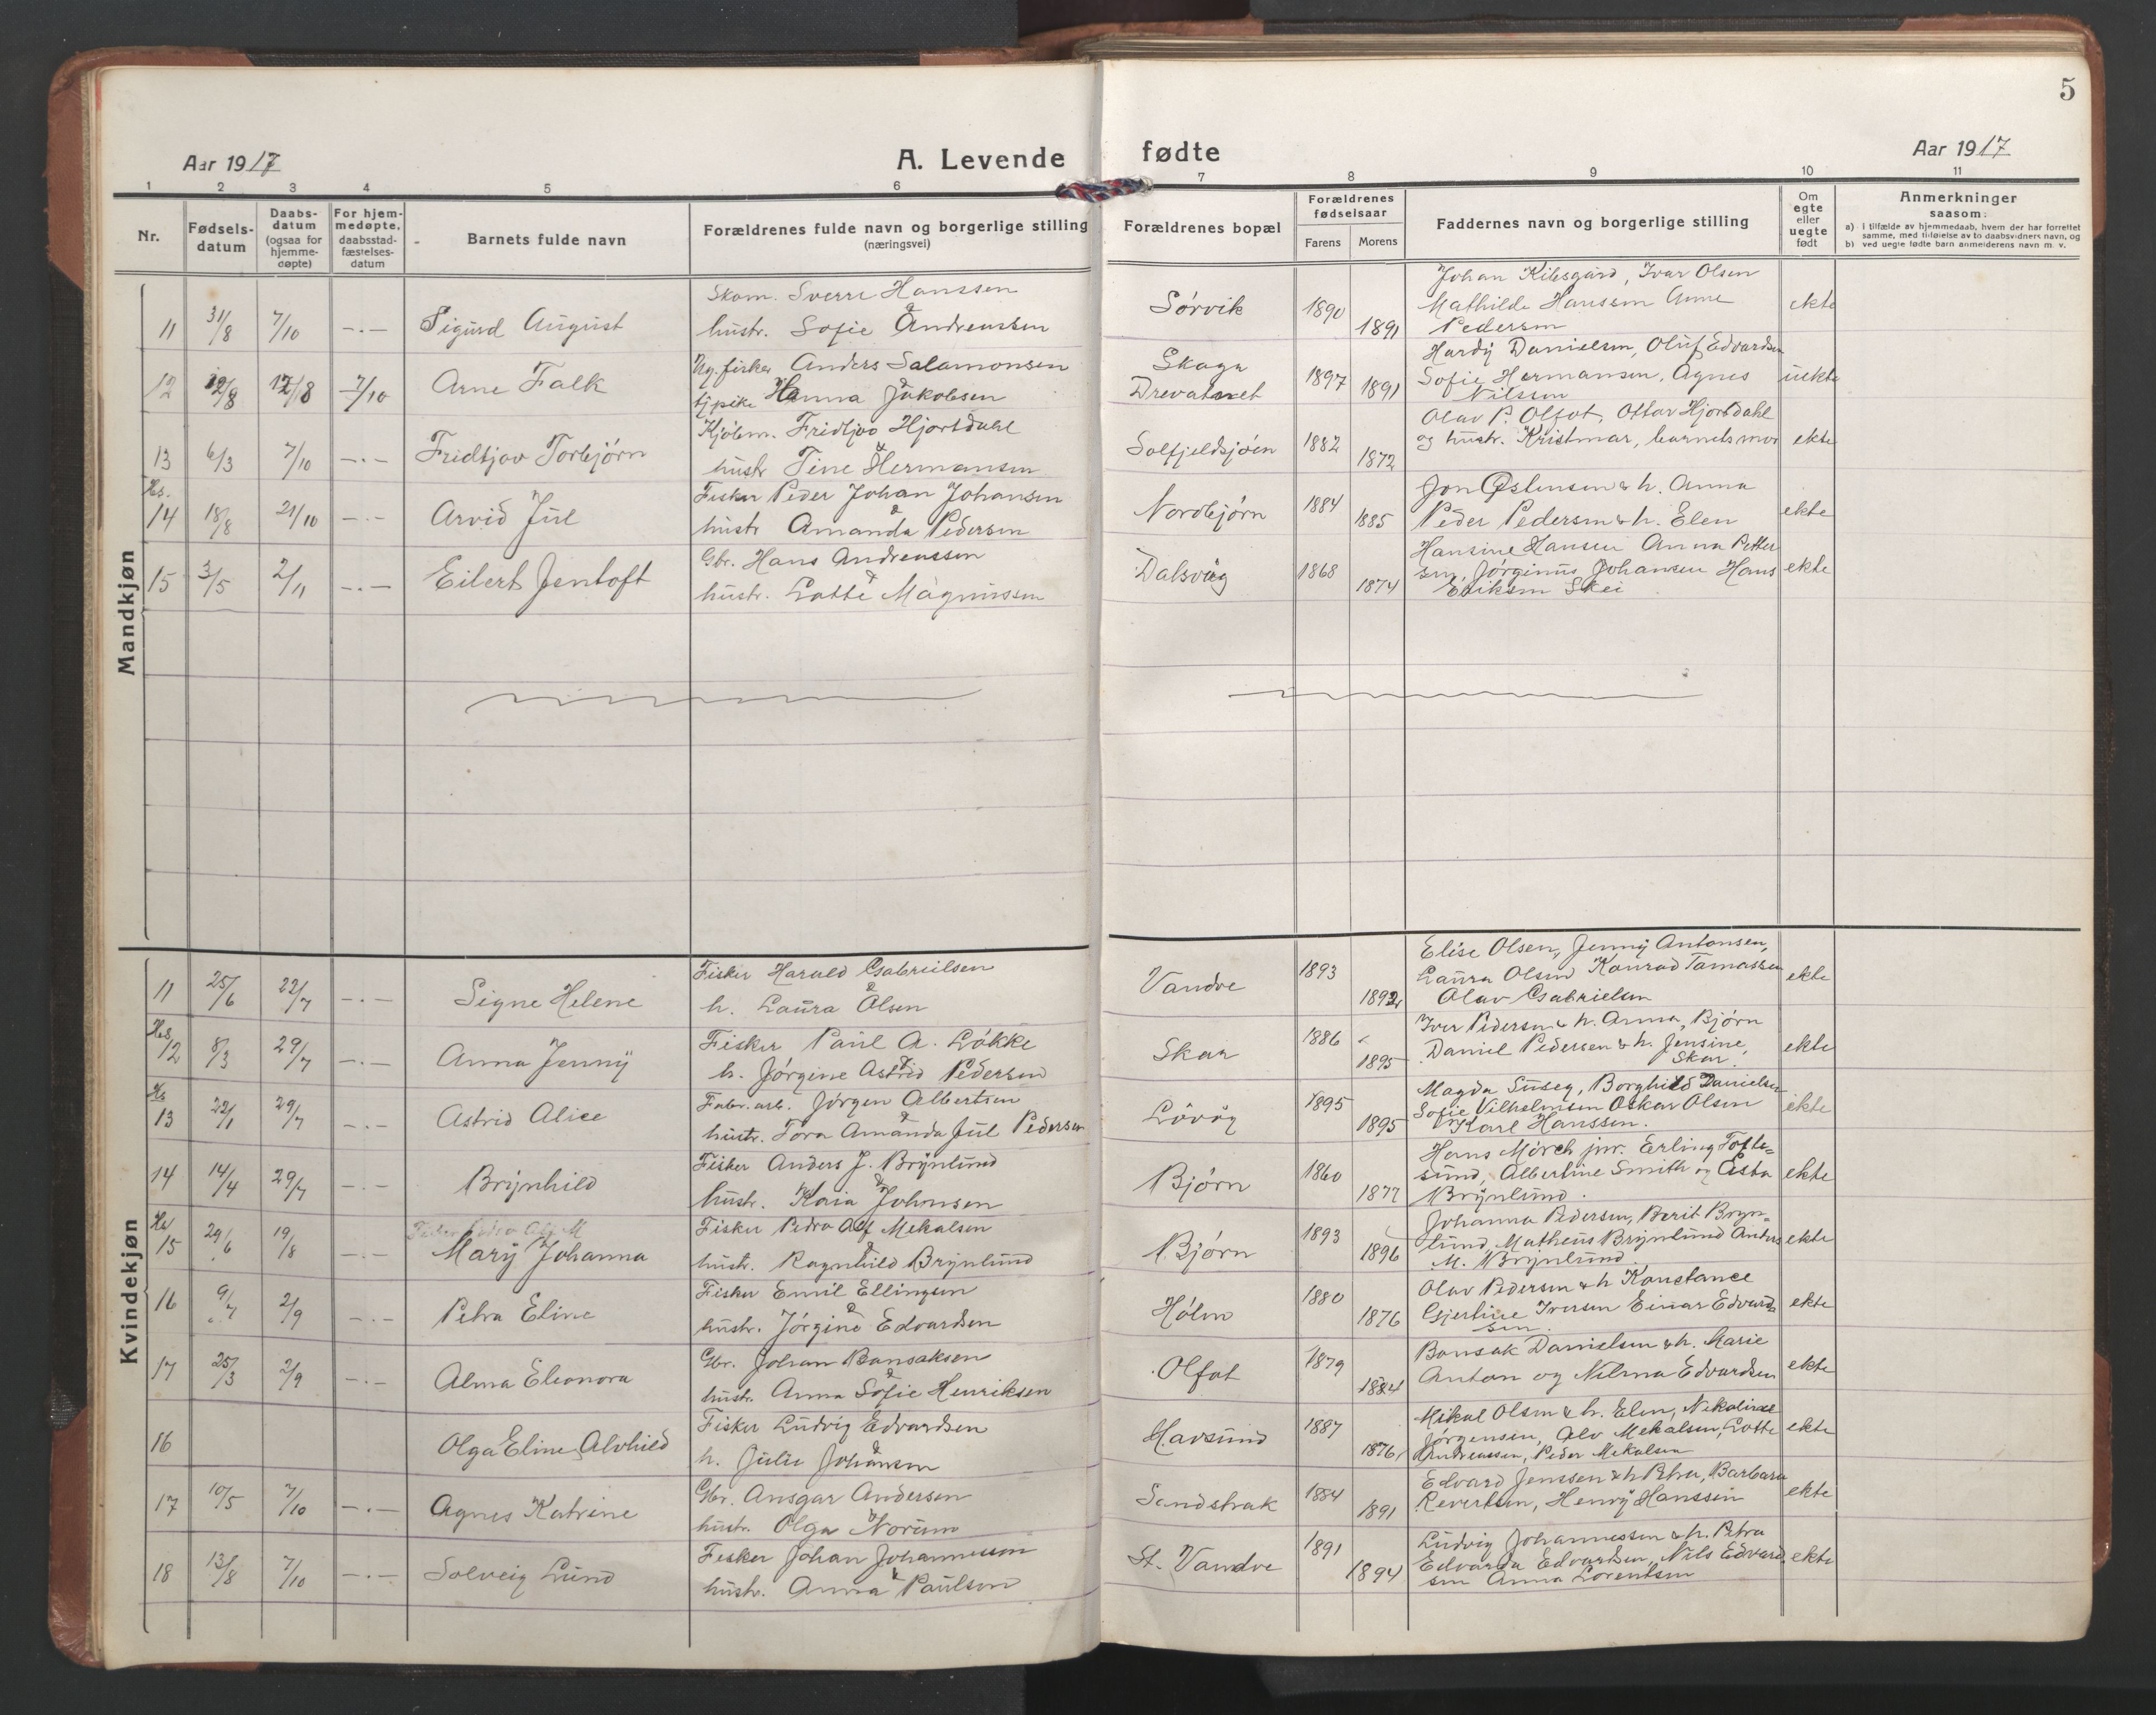 5
Aar 1917
A. Levende fødte
Aar 1917
1 2 3 4 5 6 7 8 9 10 11
Nr.
Fødsels-
datum
Daabs-
datum
(ogsaa for
hjemme-
døpte)
For hjem-
medøpte,
daabsstad-
fæstelses-
datum
Barnets fulde navn
Forældrenes fulde navn og borgerlige stilling
(næringsvei)
Forældrenes bopæl
Forældrenes
fødselsaar
Farens Morens
Faddernes navn og borgerlige stilling
Om
egte
eller
uegte
født
Anmerkninger
saasom:
a) i tilfælde av hjemmedaab, hvem der har forrettet
samme, med tilføielse av to daabsvidners navn, og
b) ved uegte fødte barn anmelderens navn m. v.
Mandkjøn
11 31/8 7/10 -.- Sigurd August
Skom. Sverre Hanssen
&
hustr. Sofie Andreassen
Sørvik 1890 1891
Johan Kilesgård, Ivar Olsen
Mathilde Hanssen Anne
Pedersen
ekte
12 12/8 12/8 7/10 Arne Falk
Ug. fisker Anders Salamonsen
&
tj pike Hanna Jakobsen
Skaga
Drevatnet
1897 1891
Hardy Danielsen, Oluf Edvardsen
Sofie Hermansen, Agnes
Nilssen
uekte
13 6/3 7/10 -.- Fridtjov Torbjørn
Kjøbm. Fridtjov Hjortdahl
&
hustr Tine Hermansen
Solfjeldsjøen 1882 1872
Olav P. Olfot, Ottar Hjortdahl
og hustr. Kristmar, barnets mor
ekte
Hs.
14 18/8 21/10 -.- Arvid Jul
Fisker Peder Johan Johansen
&
hustr Amanda Pedersen
Nordbjørn 1884 1885
Jon Østensen & h. Anna
Peder Pedersen & h. Elen
ekte
15 3/5 2/11 -.- Eilert Jentoft
Gbr. Hans Andreassen
&
hustr. Lotte Magnussen
Dalsvåg 1868 1874
Hansine Hansen Anna Petter
sen, Jørginus Johansen Hans
Eriksen Skei
ekte
Kvindekjøn
11 25/6 22/7 -.- Signe Helene
Fisker Harald Gabrielsen
&
h. Laura Olsen
Vandve 1893 1892
Elise Olsen, Jenny Antonsen,
Laura Olsen Konrad Tomassen
Olav Gabrielsen
ekte
12 8/3 29/7 -.- Anna Jenny
Fisker Paul A. Løkke
&
h. Jørgine Astrid Pedersen
Skar 1886 1895
Iver Pedersen & h. Anna, Bjørn
Daniel Pedersen & h. Jensine,
Skar
ekte
Hs
13 22/1 29/7 -.- Astrid Alice
Fabr. arb. Jørgen Albertsen
&
hustr. Tora Amanda Jul Pedersen
Løvåg 1895 1895
Magda Suseg, Borghild Danielsen
Sofie Vilhelmsen Oskar Olsen
Karl Hanssen.
ekte
14 14/4 29/7 -.- Brynhild
Fisker Anders J. Brynlund
&
hustr. Kaia Johnsen
Bjørn 1860 1877
Hans Mørch jnr. Erling Tofte=
sund, Albertine Smith og Esta
Brynlund.
ekte
15 29/6 19/8 -.- Mary Johanna
Fisker Pedro Alf Mekalsen
&
hustr. Ragnhild Brynlund
Bjørn 1893 1896
Johanna Pedersen, Berit Bryn=
lund Matheus Brynlund Anders
M. Brynlund.
ekte
16 9/7 2/9 -.- Petra Eline
Fisker Emil Ellingsen
&
hustr. Jørgine Edvardsen
Holm 1880 1876
Olav Pedersen & h Konstance
Gjertine Iversen Einar Edvard
sen.
ekte
17 25/3 2/9 -.- Alma Eleonora
Gbr. Johan Bonsaksen
&
hustr. Anna Sofie Henriksen
Olfot 1879 1884
Bonsak Danielsen & h. Marie
Anton og Nilma Edvardsen
ekte
16 Olga Eline Alvhild
Fisker Ludvig Edvardsen
&
h. Julie Johansen
Havsund 1887 1876
Mikal Olsen & h. Elen, Nekoline
Jørgensen, Alv Mekalsen, Lotte
Andreassen, Peder Mekalsen
ekte
17 10/5 7/10 -.- Agnes Katrine
Gbr. Ansgar Andersen
hustr. Olga Norum
Sandstrak 1884 1891
Edvard Jenssen & h Petra, Barbara
Revertsen, Henry Hanssen
ekte
18 13/8 7/10 -.- Solveig Lund
Fisker Johan Johannessen
&
hustr. Anna Paulsen
St. Vandve 1891 1894
Ludvig Johannessen & h. Petra
Edvarda Edvardsen, Nils Edvard
sen Anna Lorentsen
ekte